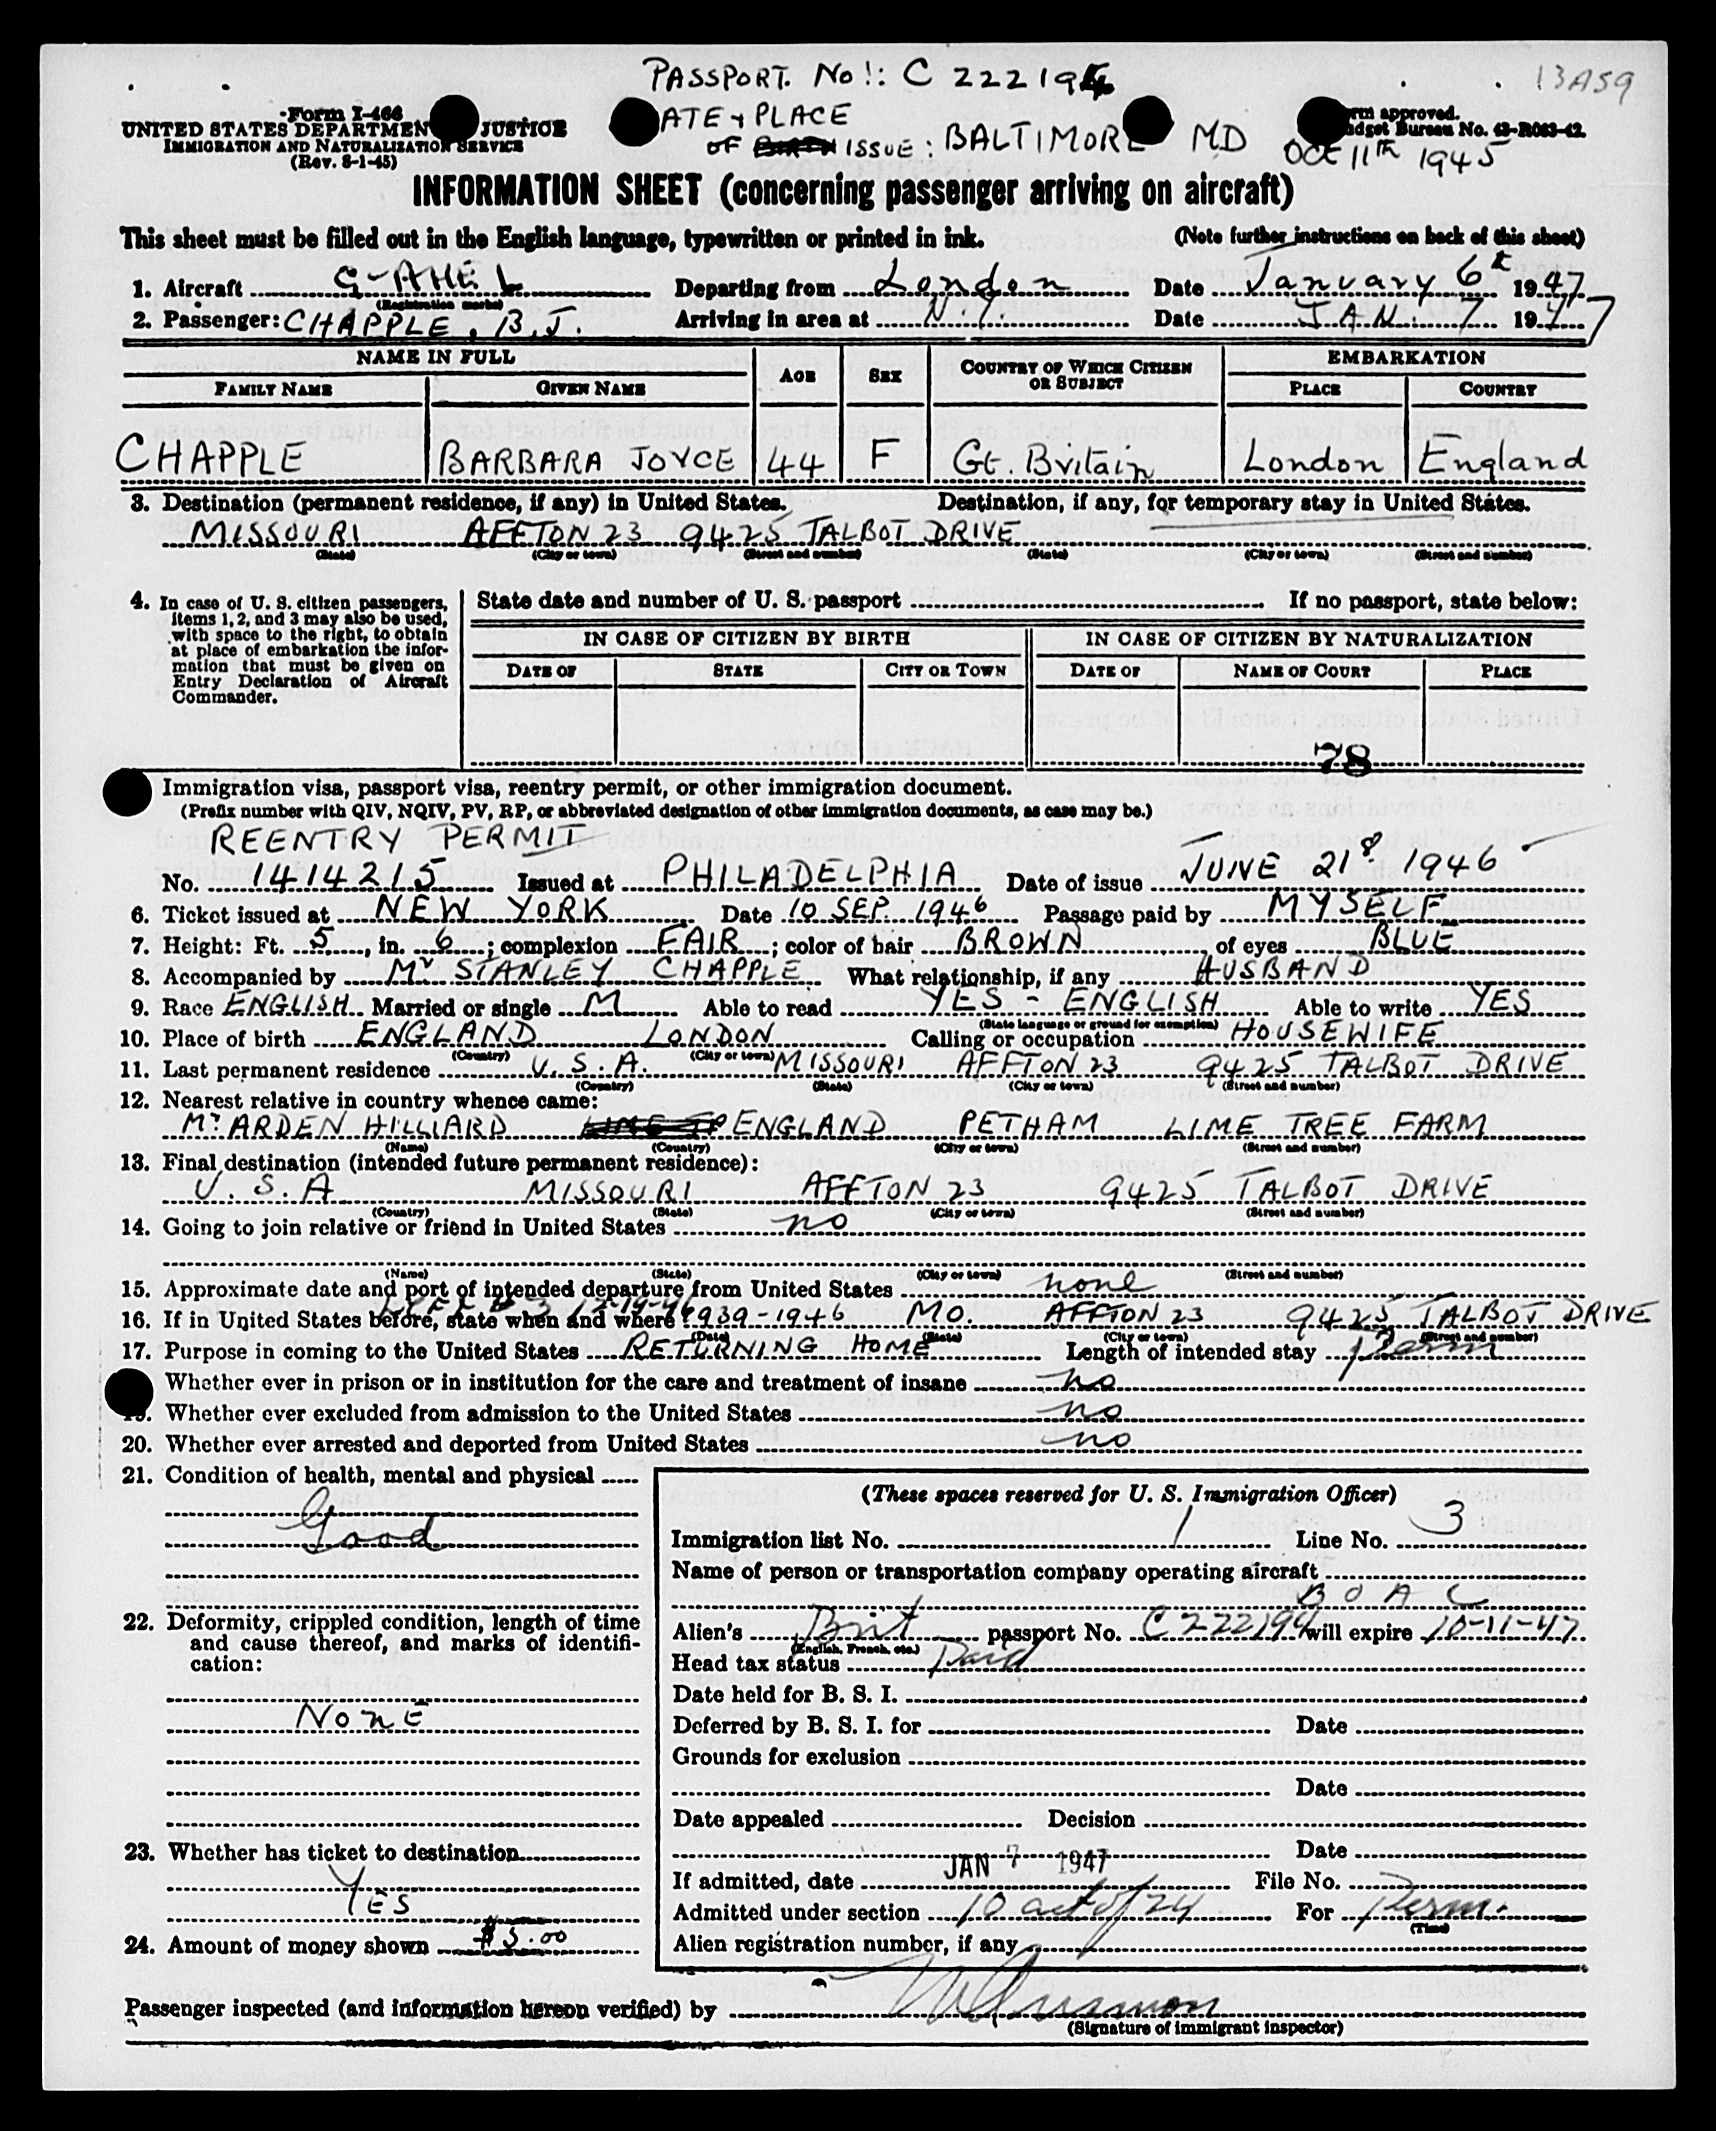 PASSPORT. No!: C 222194
13A59
Form I-466
UNITED STATES DEPARTMEN JUSTICE
IMMIGRATION AND NATURALIZATION SERVICE
(Rev. 8-1-45)
ATE + PLACE
OF BIRTH ISSUE: BALTIMORE MD OCT 11th 1945
rm approved.
dget Bureau No. 43-R063-42.
INFORMATION SHEET (concerning passenger arriving on aircraft)
This sheet must be filled out in the English language, typewritten or printed in ink. (Note further instructions on back of this sheet)
1. Aircraft G-AHEL Departing from London Date January 6th 1947
(Registration marks)
2. Passenger: CHAPPLE, B.J. Arriving in area at N.Y. Date JAN. 7 1947
NAME IN FULL AGE SEX COUNTRY OF WHICH CITIZEN OR SUBJECT EMBARKATION
FAMILY NAME GIVEN NAME PLACE COUNTRY
CHAPPLE BARBARA JOYCE 44 F Gt. Britain London England
3. Destination (permanent residence, if any) in United States. Destination, if any, for temporary stay in United States.
MISSOURI AFFTON 23 9425 TALBOT DRIVE
(State) (City or town) (Street and number) (State) (City or town) (Street and number)
4. In case of U. S. citizen passengers, items 1, 2, and 3 may also be used, with space to the right, to obtain at place of embarkation the information that must be given on Entry Declaration of Aircraft Commander.
State date and number of U. S. passport If no passport, state below:
IN CASE OF CITIZEN BY BIRTH IN CASE OF CITIZEN BY NATURALIZATION
DATE OF STATE CITY OR TOWN DATE OF NAME OF COURT PLACE
78
Immigration visa, passport visa, reentry permit, or other immigration document.
(Prefix number with QIV, NQIV, PV, RP, or abbreviated designation of other immigration documents, as case may be.)
REENTRY PERMIT
No. 1414215 Issued at PHILADELPHIA Date of issue JUNE 21 1946
6. Ticket issued at NEW YORK Date 10 SEP. 1946 Passage paid by MYSELF
7. Height: Ft. 5, in. 6; complexion FAIR; color of hair BROWN of eyes BLUE
8. Accompanied by Mr STANLEY CHAPPLE What relationship, if any HUSBAND
9. Race ENGLISH Married or single M Able to read YES - ENGLISH Able to write YES
(State language or ground for exemption)
10. Place of birth ENGLAND LONDON Calling or occupation HOUSEWIFE
(Country) (City or town)
11. Last permanent residence U.S.A. MISSOURI AFFTON 23 9425 TALBOT DRIVE
(Country) (State) (City or town) (Street and number)
12. Nearest relative in country whence came:
Mr ARDEN HILLIARD ENGLAND PETHAM LIME TREE FARM
(Name) (Country) (City or town) (Street and number)
13. Final destination (intended future permanent residence):
U.S.A MISSOURI AFFTON 23 9425 TALBOT DRIVE
(Country) (State) (City or town) (Street and number)
14. Going to join relative or friend in United States no
(Name) (State) (City or town) (Street and number)
15. Approximate date and port of intended departure from United States none
12-19-46
16. If in United States before, state when and where 1939-1946 MO. AFFTON 23 9425 TALBOT DRIVE
(Date) (State) (City or town) (Street and number)
17. Purpose in coming to the United States RETURNING HOME Length of intended stay Perm
Whether ever in prison or in institution for the care and treatment of insane no
19. Whether ever excluded from admission to the United States no
20. Whether ever arrested and deported from United States no
21. Condition of health, mental and physical
Good
22. Deformity, crippled condition, length of time and cause thereof, and marks of identification:
NONE
23. Whether has ticket to destination
YES
24. Amount of money shown $5.00
(These spaces reserved for U. S. Immigration Officer)
Immigration list No. 1 Line No. 3
Name of person or transportation company operating aircraft
B O A C
Alien's Brit passport No. C222194 will expire 10-11-47
(English, French, etc.)
Head tax status Paid
Date held for B. S. I.
Deferred by B. S. I. for Date
Grounds for exclusion
Date
Date appealed Decision
Date
If admitted, date JAN 7 1947 File No.
Admitted under section 10 act of 24 For Perm.
(Time)
Alien registration number, if any
Passenger inspected (and information hereon verified) by
(Signature of immigrant inspector)